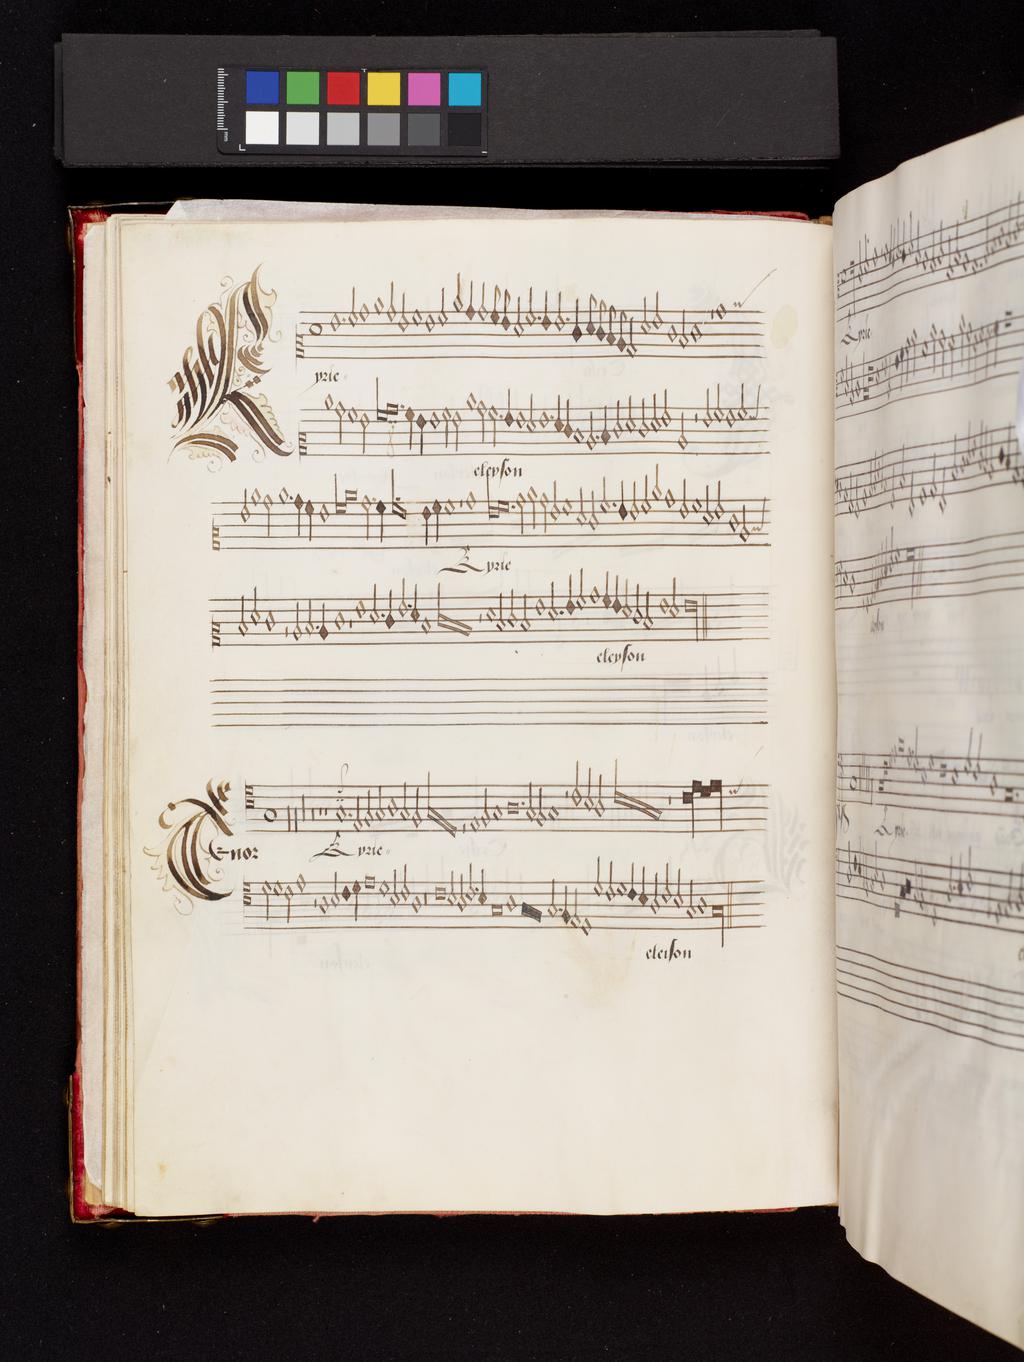 Kyrie
eleyson
Kyrie
eleyson
Tenor
Kyrie
eleison
Kyrie